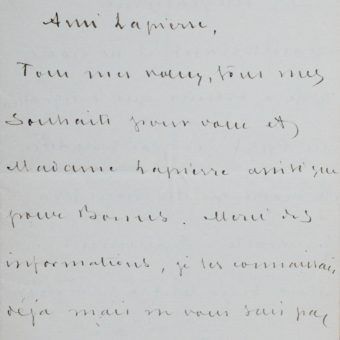 Ami Lapierre,
Tous mes vœux, tous mes
souhaits pour vous et
Madame Lapierre ainsi que
pour Bonus. Merci des
informations, je les connaissais
déjà mais n vous sais pas